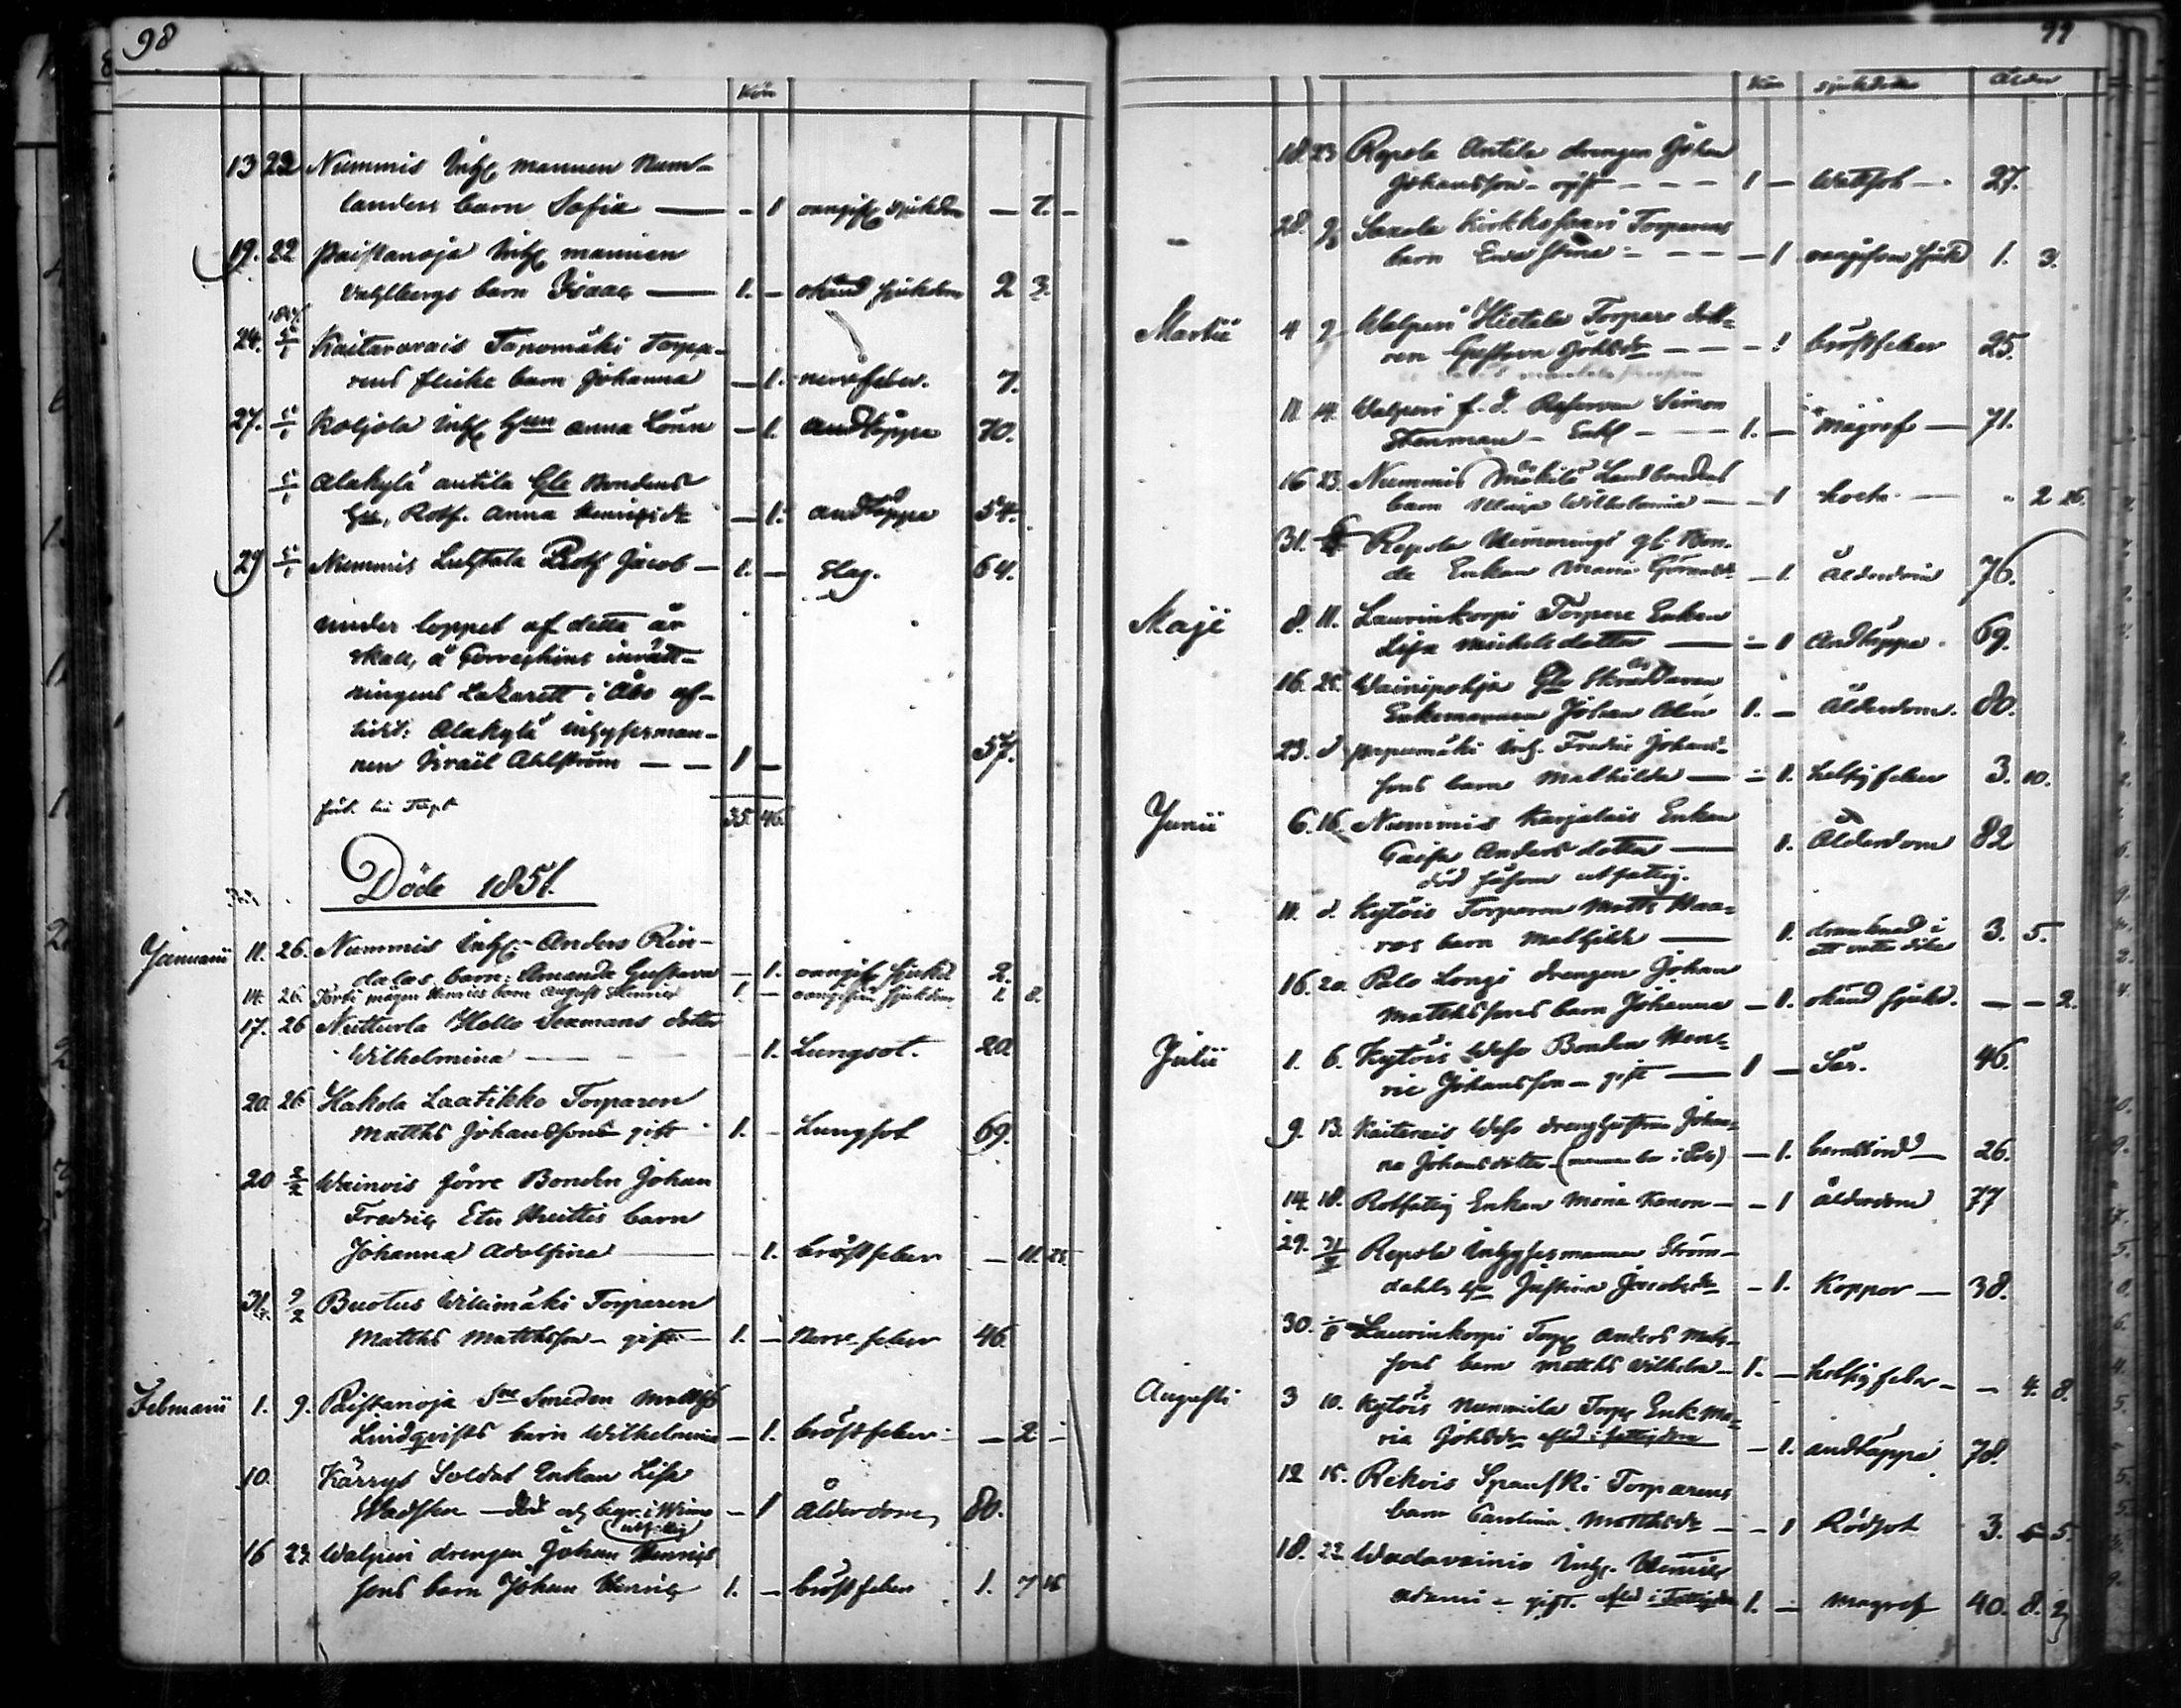 98
Kön
13 22 Nummis Inh mannen Num-
landers barn Sofia — - 1 oangif sjukdm — 7. -
19. 22 Paistanoja Inh mannen
Vahlbergs barn Isaac — 1. - okänd sjukdom 2 3.
1851.
24. 5/1 Kaitarais Tapomäki Torpa-
rens flicke barn Johanna — 1. nervfeber. 7.
27. 5/1 Koljola Inh Hun Anna Lönn — 1. andtäppa 70.
5/1 Alakylä Antila Gle Bondens
Hu, Rothj. Anna Henricidr — 1. andtäppa 54.
29 5/1 Nummis Luhtala Roth Jacob — 1. — slag. 64.
under loppet af detta år
skall, å Corrections inrätt-
ningens Lazarett i Åbo af-
lidit: Alakylä inhysesman-
nen Israël Ahlström — — 1 — 57.
35. 46.
Döde 1851.
Januarii 11. 26. Nummis Inh. Anders Rin-
dalas barn: Amanda Gustava — 1. oangif sjukd 2.
14. 26. mågen Henrics barn August Henric 1. — oangifven sjukdom 1. 8.
17. 26 Nutturla Hollo Sexmans dotter
Wilhelmina — 1. Lungsot. 20.
20. 26. Hakola Laatikko Torparen
Matths Johansson gift 1. - Lungsot 69.
20 2/2 Wainois förre Bonden Johan
Fredric Etu Huittis barn
Johanna Adolfina — - 1. bröstfeber — 11. 25.
31. 9/2 Buotus Willimäki Torparen
Matths Matthsson - gift — 1. — Nerv-feber 46.
Februarii 1. 9. Paistanoja Sne Smeden Matths
Lindqvists barn Wilhelmina — 1. bröstfeber — 2 -
10. Kärrys Soldat Enkan Lisa
Wadsten — död och begr. i Wirmo - 1 Ålderdom, 80.
(utfattig)
16 23. Walperi drengen Johan Henrics
sons barn Johan Henric 1. - bröstfeber 1. 7 16
99
Kön sjukdom Ålder
18. 23 Repola Antila drengen Johan
Johansson - ogift - - - 1 — Wattsot — 27.
28. 9/3 Saxala Kirkkosaari Torparens
barn Eva Stina - - - — 1 oangifven sjukd 1. 3.
Martii 4 9 Walperi Hietala Torpare dott-
ren Gustava Johsdr — — - 1 bröstfeber 25.
11. 14. Walperi f. d. Reserven Simon
Stenman - Enkl - — 1. — Magref — 71.
16 23. Nummis Mäkilä Landbondas
barn Wilhelmina — - 1 kock. — " 2 26.
31. Repola Hemmings gl. Bon-
de Enkan Maria Göransdr — 1. Ålderdom 76.
Maji 8. 11. Laurinkorpi Torpare Enkan
Lisa Michelsdotter — - 1 Andtäppa. 69.
16. 25. Wainiopohja Gle Skräddaren,
Enkemannen Johan Alén 1. — Ålderdom. 80.
23. d. Inh. Fredric Johans-
sons barn Mathilda — — 1. hetsig feber 3. 10.
Junii 6. 16. Nummis Karjalais Enkan
Caisa Andersdotter — 1. Ålderdom 82
död såsom utfattig.
11. d. Kytöis Torparen Matts Waa-
ras barn Mathilda — 1. drunknad i 3. 5.
ett vatten dike
16. 20. Palo Longi drengen Johan
Matthssons barn Johanna — 1. okänd sjukd. — — 2.
Julii 1. 6. Kytöis Weso Bonden Hen-
ric Johansson - gift — 1 — Sår. 46.
9. 13. Kaitarais Weso dreng hustrun Johan-
na Johansdotter — 1. barnsbörd — 26.
14. 18. Rotfattig Enkan Maria Kanon — - 1 ålderdom 77
29. 31/8 Repola Inhysesmannen Ström-
dahls Hu Justina Jacobsdr — 1. Koppor — 38.
30. 1/8 Laurinkorpi Torp Anders Matts-
sons barn Matths Wilhelm — 1. — hetsig feber — — 4. 8.
Augusti 3 10. Kytöis Nummila Torp Enk Ma-
ria Johsdr — 1. andtäppa 78.
12 15. Rekois Spanski Torparens
barn Carolina Matthsdr — - 1 Rödsot 3. 5.
18. 22 Wadavainio Inh. Henric
Adami - gift. 1. — Magref 40. 8. 2